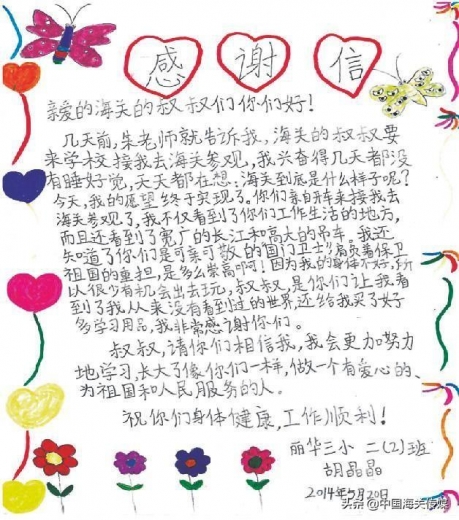 感谢信
亲爱的海关的叔叔们你们好!
几天前,朱老师就告诉我,海关的叔叔要
来学校接我去海关参观,我兴奋得几天都没
有睡好觉,天天都在想:海关到底是什么样子呢?
今天,我的愿望终于实现了。你们亲自开车来接我去
海关参观了,我不仅看到了你们工作生活的地方,
而且还看到了宽广的长江和高大的吊车。我还
知道了你们是可亲可敬的国门卫士,肩负着保卫
祖国的重担,是多么崇高啊!因为我的身体不好,所
以很少有机会出去玩,叔叔,是你们让我看
到了我从来没有看到过的世界,还给我买了好
多学习用品,我非常感谢你们。
叔叔,请你们相信我,我会更加努力
地学习,长大了像你们一样,做一个有爱心的、
为祖国和人民服务的人。
祝你们身体健康,工作顺利!
丽华三小 二(2)班
胡晶晶
2014年5月20日
头条 @中国海关传媒